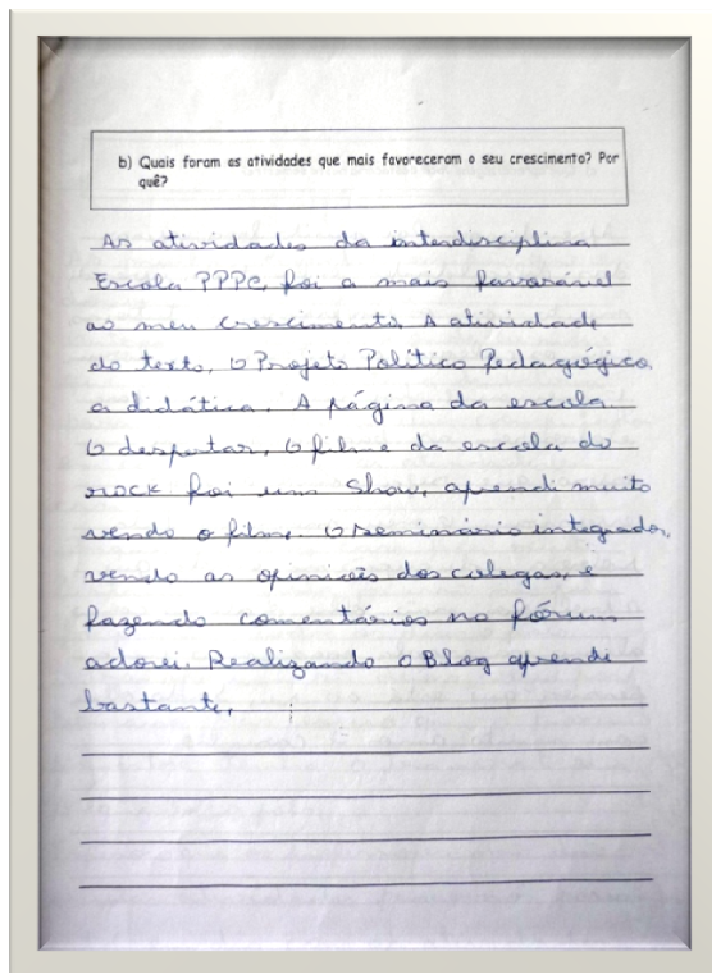 b) Quais foram as atividades que mais favoreceram o seu crescimento? Por
quê?
As atividades da interdisciplina
Escola PPPC, foi a mais favorável
ao meu crescimento, A atividade
do texto, O Projeto Político Pedagógico,
a didática. A página da escola.
O despertar, O filme da escola do
rock foi um show, aprendi muito
vendo o filme. O seminário integrador,
vendo as opiniões dos colegas, e
fazendo comentários no fórum
adorei. Realizando o Blog aprendi
bastante.